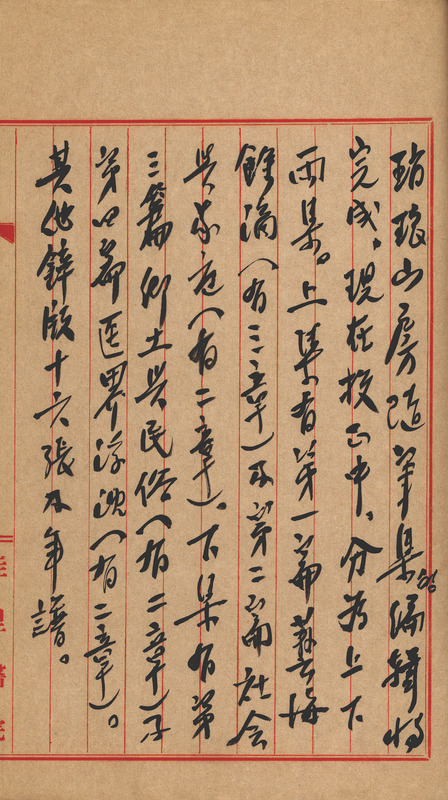 琅山房随筆集的編輯將
完成，現在校正中，分為上下
両集。上集有第一篇藝海
餘滴（有三章）及第二篇社会
與家庭（有二章）。下集有第
三篇鄉土與民俗（有二章）及
第四篇医界浮沈（有二章）。
其他鋅版十六張及年譜。